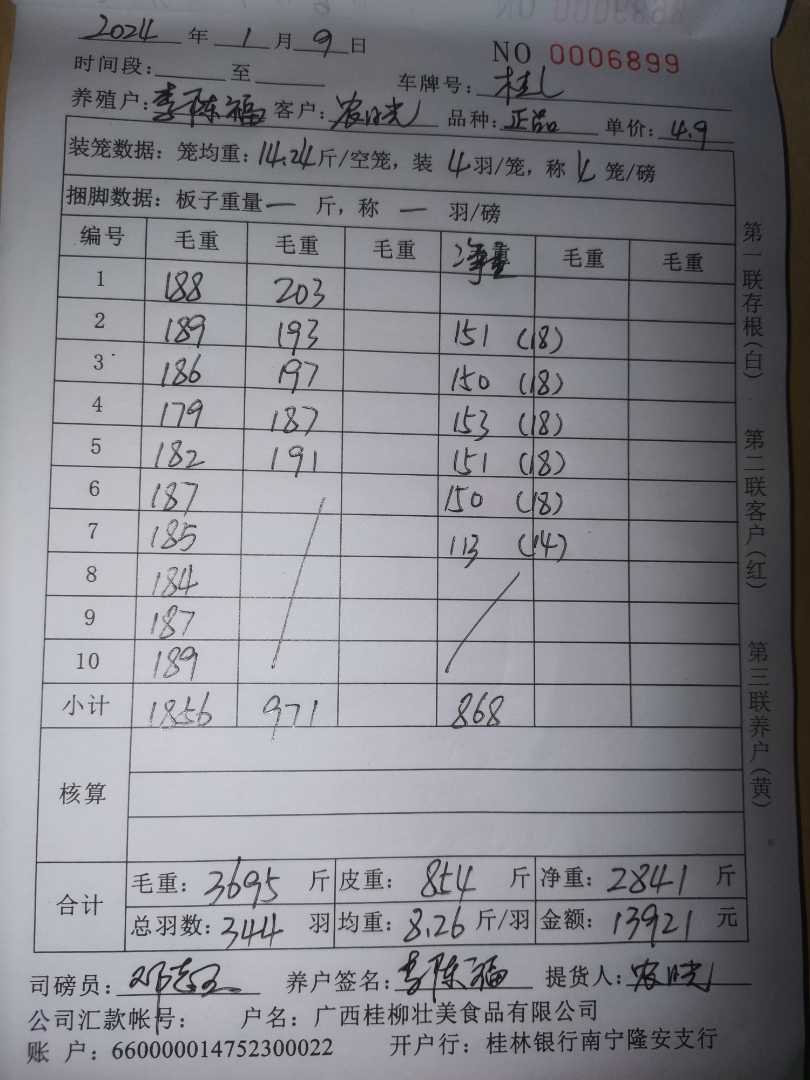 2024 年 1 月 9 日
NO 0006899
时间段: 至 车牌号: 桂L
养殖户: 李陈福 客户: 农晓 品种: 正品 单价: 4.9
装笼数据: 笼均重: 14.24 斤/空笼, 装 4 羽/笼, 称 4 笼/磅
捆脚数据: 板子重量 一 斤, 称 一 羽/磅
编号 毛重 毛重 毛重 净重 毛重 毛重
1 188 203
2 189 193 151 (18)
3 186 197 150 (18)
4 179 187 153 (18)
5 182 191 151 (18)
6 187 150 (18)
7 185 113 (14)
8 184
9 187
10 189
小计 1856 971 868
核算
合计 毛重: 3695 斤 皮重: 854 斤 净重: 2841 斤
总羽数: 344 羽 均重: 8.26 斤/羽 金额: 13921 元
司磅员: 养户签名: 李陈福 提货人: 农晓
公司汇款帐号: 户名: 广西桂柳壮美食品有限公司
账 户: 660000014752300022 开户行: 桂林银行南宁隆安支行
第一联存根(白) 第二联客户(红) 第三联养户(黄)